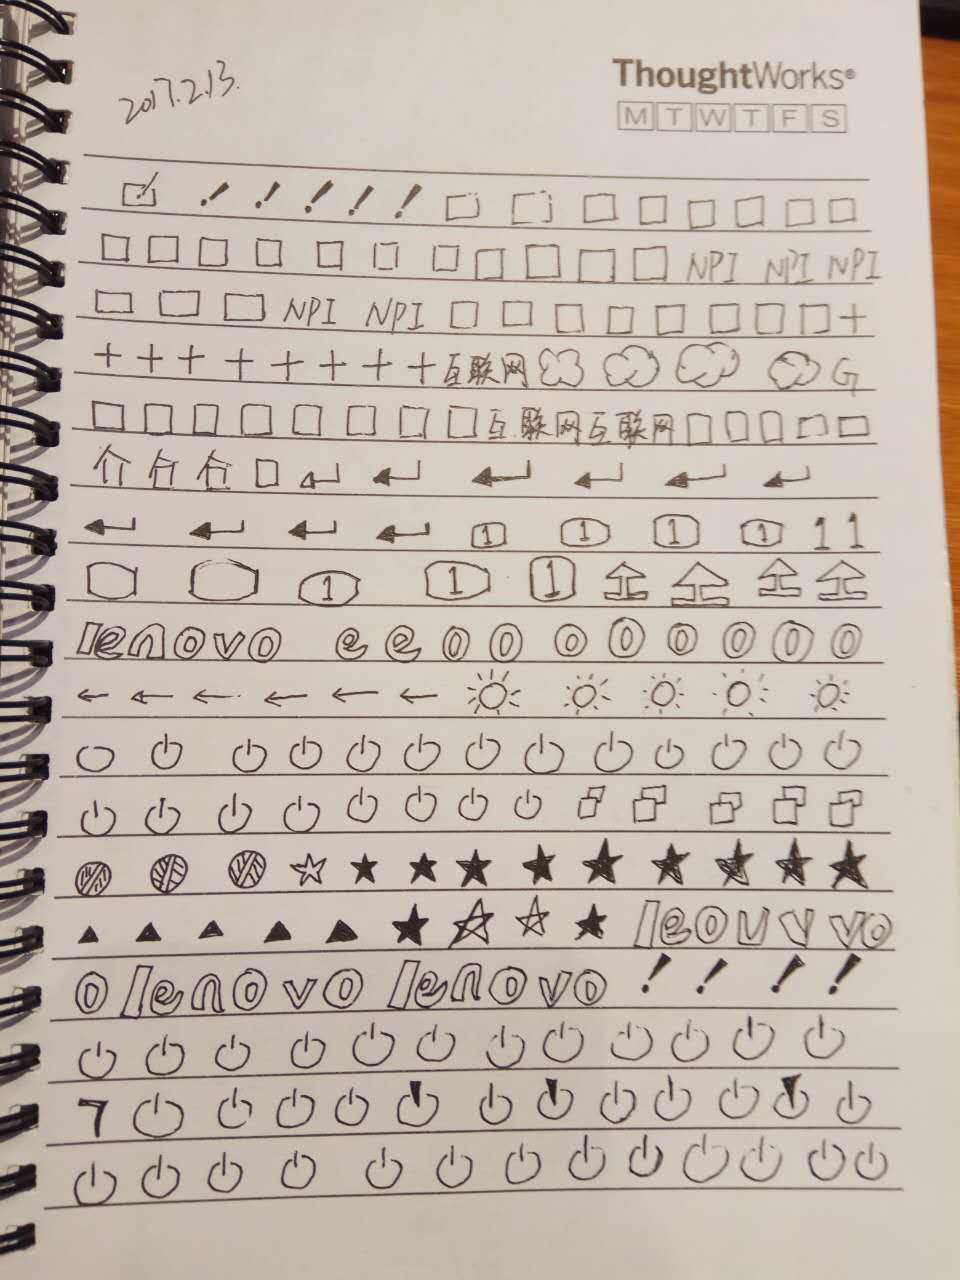 2017.2.13.
ThoughtWorks®
M T W T F S
! ! ! ! !
NPI NPI NPI
NPI NPI +
+ + + + + + + + 互联网 G
互联网 互联网
个 合 合
1 1 1 1 1 1
1 1 1
lenovo e e o o o o o o o o
leouvvo
o lenovo lenovo ! ! ! !
7